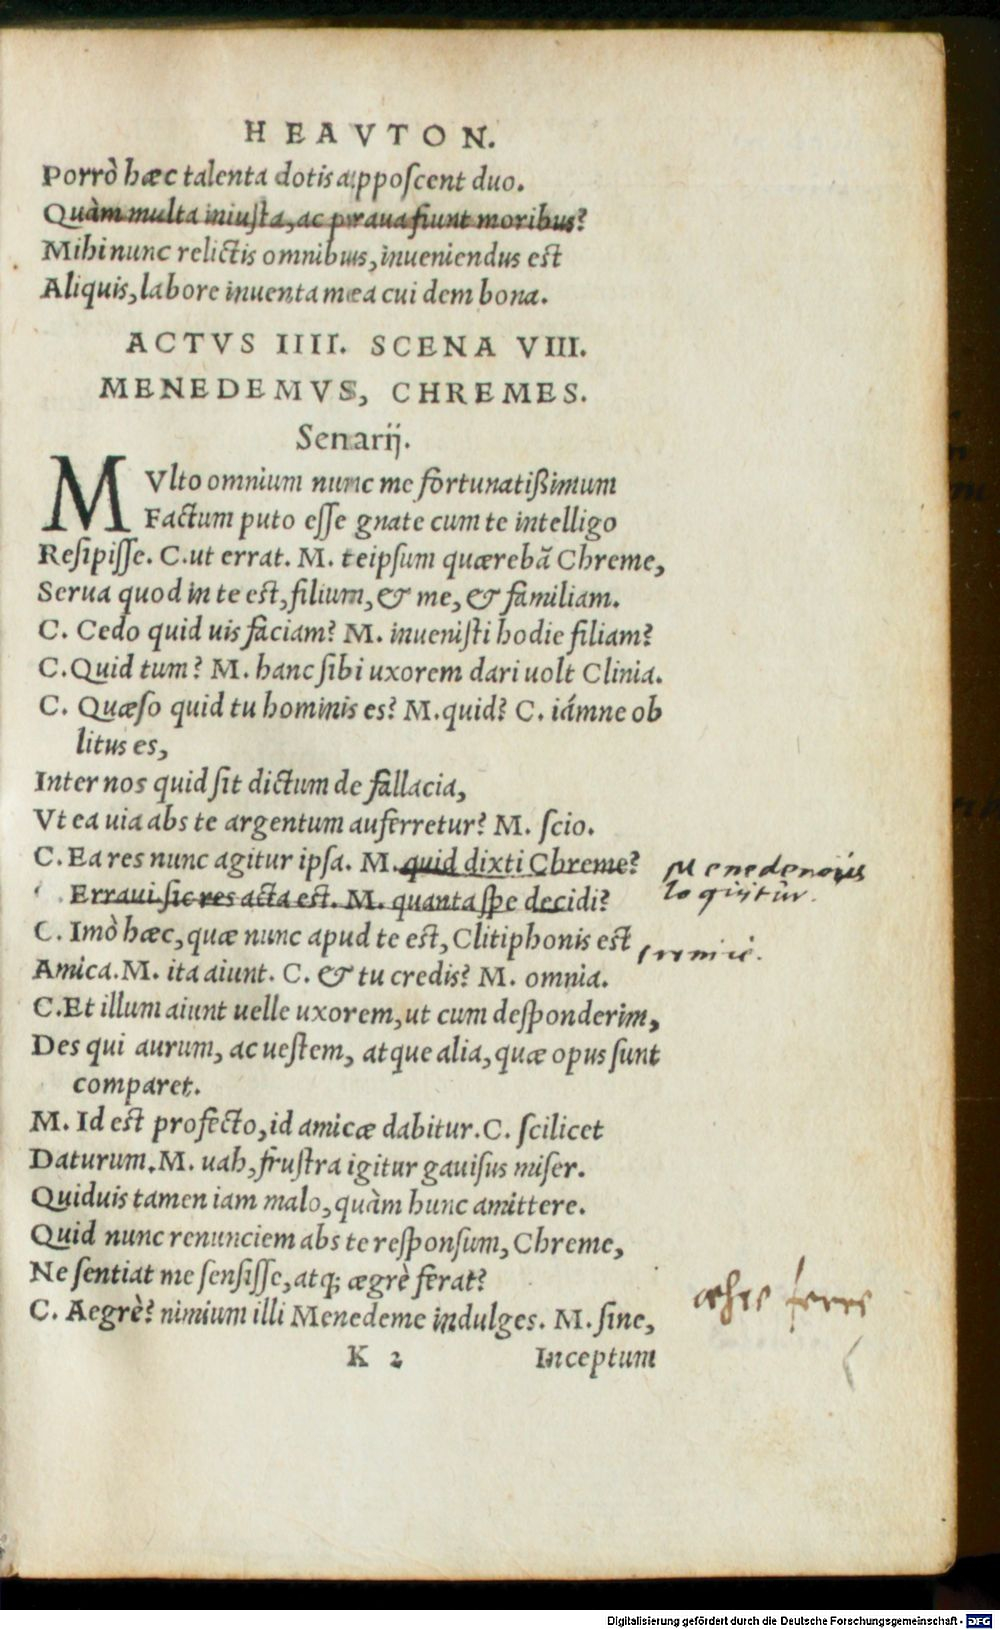 HEAVTON.
Porrò hæc talenta dotis apposcent duo.
Quàm multa iniusta, ac praua fiunt moribus?
Mihi nunc relictis omnibus, inueniendus est
Aliquis, labore inuenta mea cui dem bona.
ACTVS IIII. SCENA VIII.
MENEDEMVS, CHREMES.
Senarij.
MVlto omnium nunc me fortunatißimum
Factum puto esse gnate cum te intelligo
Resipisse. C. ut errat. M. teipsum quærebã Chreme,
Serua quod in te est, filium, & me, & familiam.
C. Cedo quid uis faciam? M. inuenisti hodie filiam?
C. Quid tum? M. hanc sibi uxorem dari uolt Clinia.
C. Quæso quid tu hominis es? M. quid? C. iámne ob
litus es,
Inter nos quid sit dictum de fallacia,
Vt ea uia abs te argentum auferretur? M. scio.
C. Ea res nunc agitur ipsa. M. quid dixti Chreme?
Erraui. sic res acta est. M. quanta spe decidi?
Menedemus
loquitur.
C. Imò hæc, quæ nunc apud te est, Clitiphonis est
Amica. M. ita aiunt. C. & tu credis? M. omnia.
C. Et illum aiunt uelle uxorem, ut cum desponderim,
Des qui aurum, ac uestem, atque alia, quæ opus sunt
comparet.
M. Id est profecto, id amicæ dabitur. C. scilicet
Daturum. M. uah, frustra igitur gauisus miser.
Quiduis tamen iam malo, quàm hunc amittere.
Quid nunc renunciem abs te responsum, Chreme,
Ne sentiat me sensisse, atq; ægrè ferat?
C. Aegrè? nimium illi Menedeme indulges. M. sine,
K 2 Inceptum
Digitalisierung gefördert durch die Deutsche Forschungsgemeinschaft - DFG